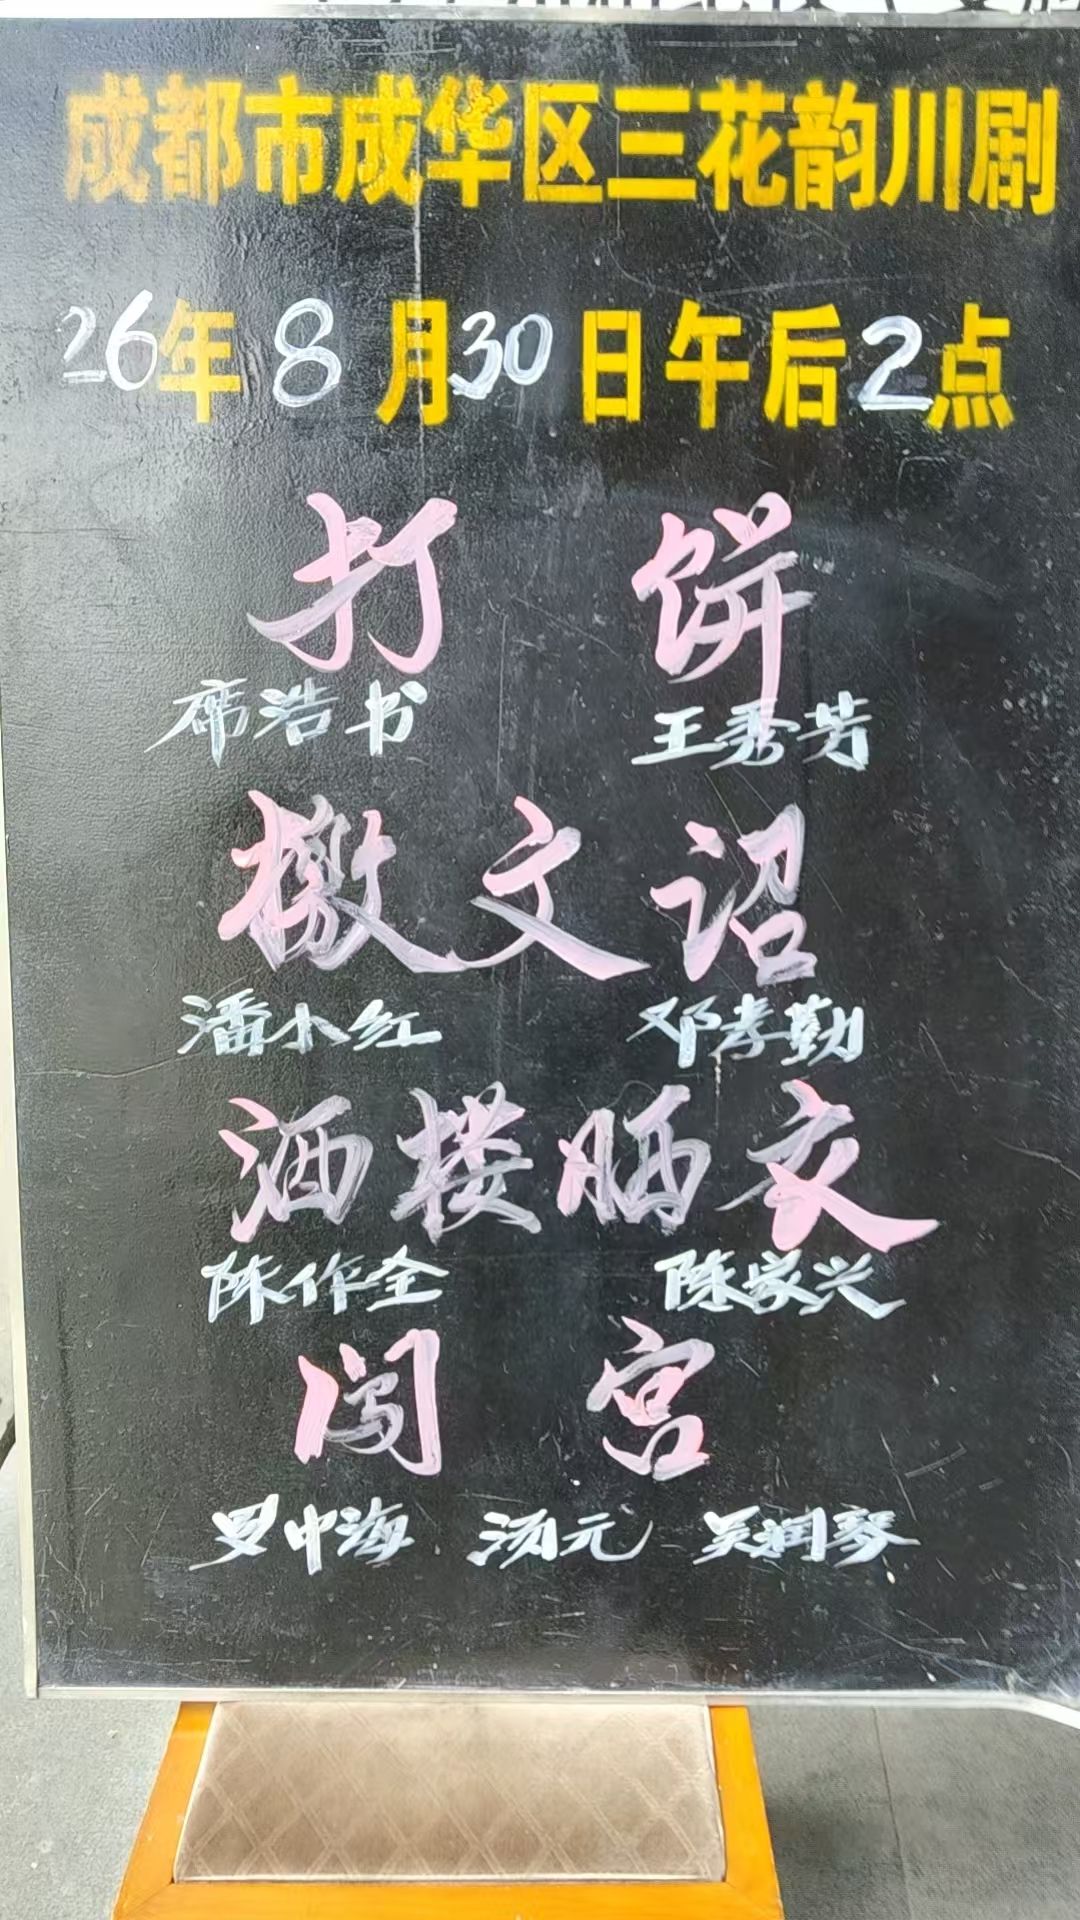 成都市成华区三花韵川剧
26年8月30日午后2点
打饼
席浩书 王秀芳
檄文诏
潘小红 邓孝勤
酒楼晒衣
陈作全 陈家兴
闯宫
罗中海 汤元 吴润琴